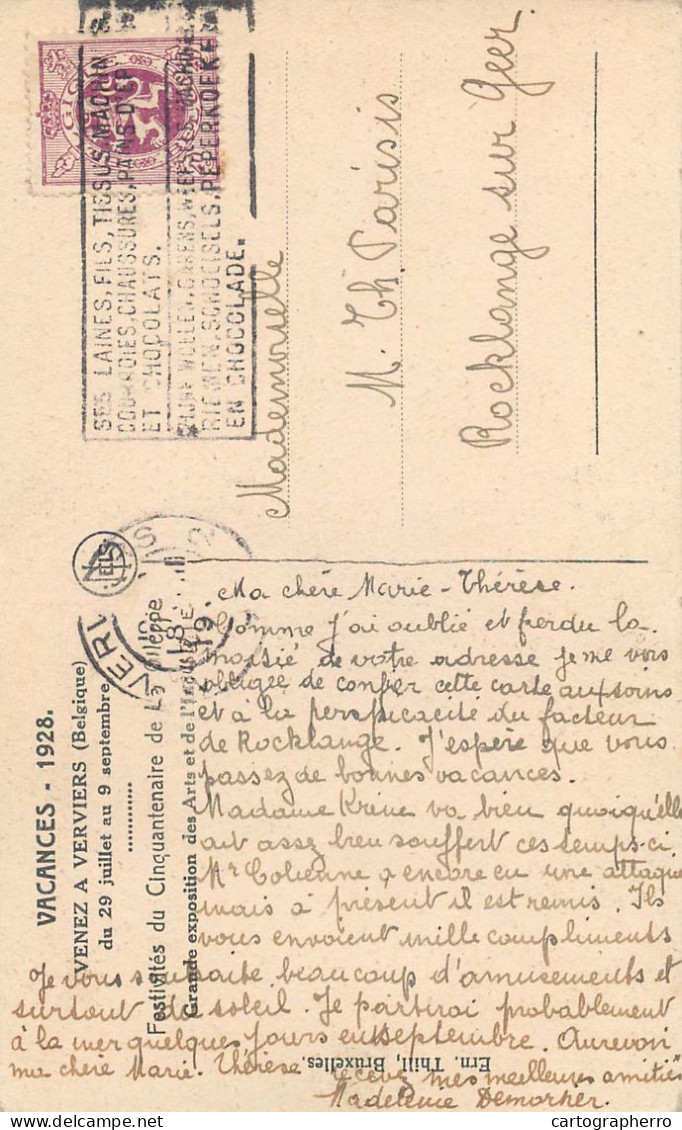 SES LAINES, FILS, TISSUS, MACHIN
COURROIES, CHAUSSURES, PAINS D'EP
ET CHOCOLATS.
WOLLEN, GARENS, WEEF
RIEMEN, SCHOEISELS, PEPERKOEKE
EN CHOCOLADE.
Mademoiselle
M. Th. Parisis
Rocklange sur Geer.
VACANCES - 1928.
VENEZ A VERVIERS (Belgique)
du 29 juillet au 9 septembre
Festivités du Cinquantenaire de La Gileppe
Grande exposition des Arts et de l'Industrie
Ern. Thill, Bruxelles.
NELS
VERV
Ma chère Marie-Thérèse.
Comme j'ai oublié et perdu la
moisié de votre adresse je me vois
obligée de confier cette carte aux soins
et à la perspicacité du facteur
de Rocklange. J'espère que vous
passez de bonnes vacances.
Madame Krine va bien quoiqu'elle
ait assez bien souffert ces temps-ci.
Mr a encore eu une attaque
mais à présent il est remis. Ils
vous envoient mille compliments
Je vous souhaite beaucoup d'amusements et
surtout du soleil. Je partirai probablement
à la mer quelques jours en septembre. Aurevoir
ma chère Marie-Thérèse recevez mes meilleures amitiés
Madeleine Demorhier.
cartographerro
cartographerro.delcampe.net